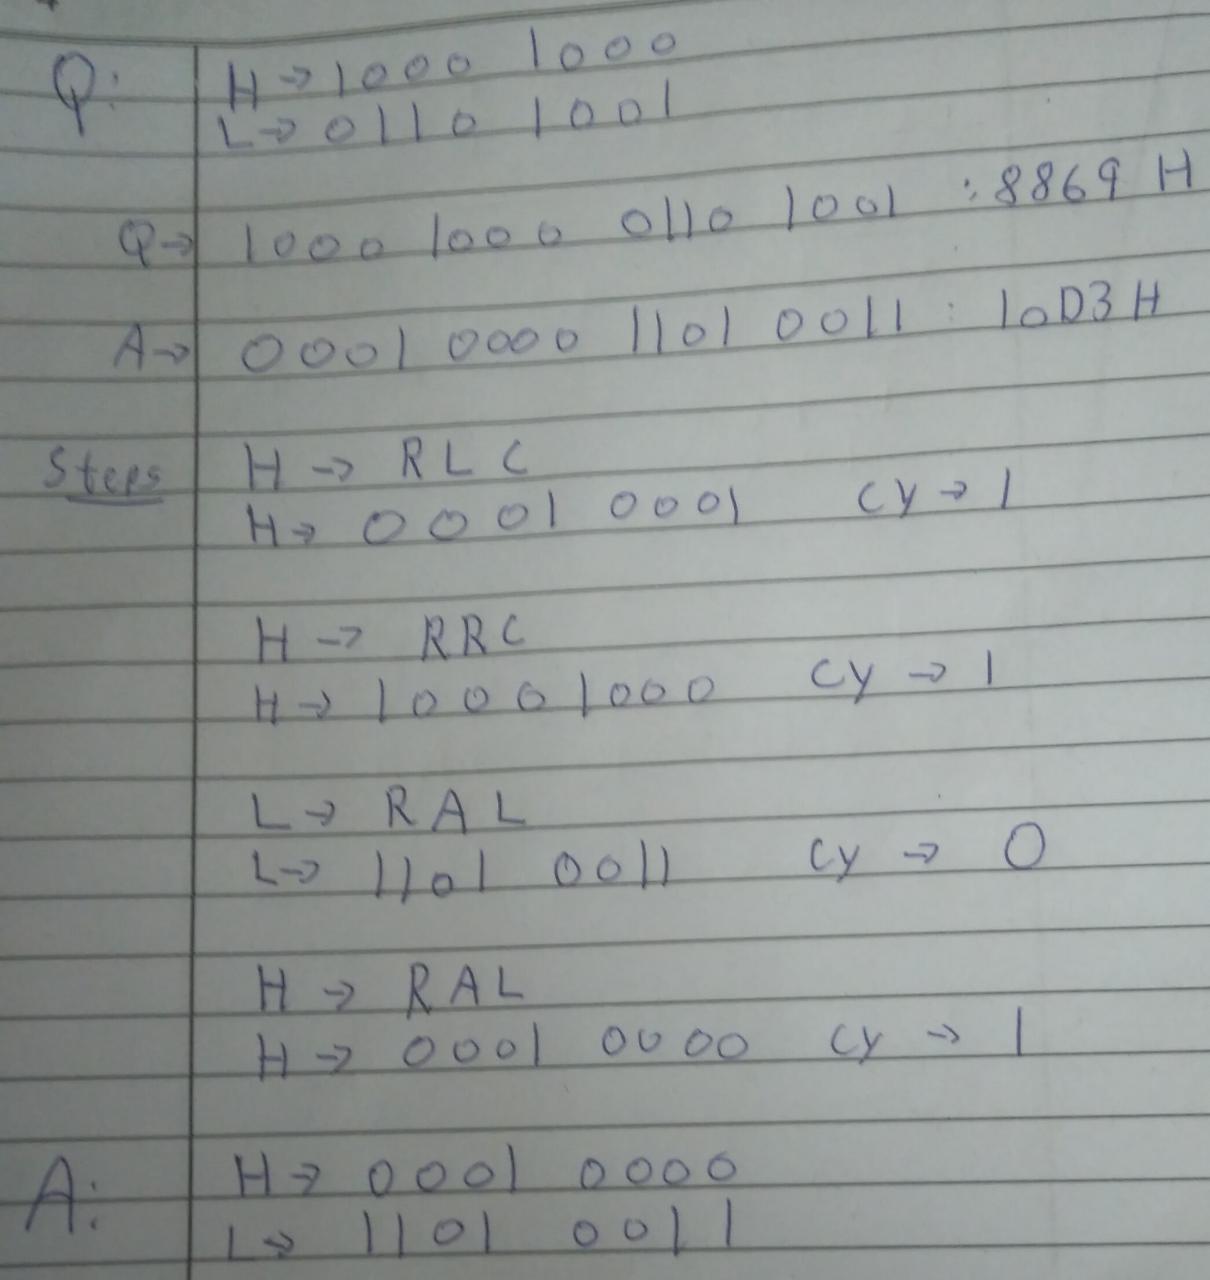 Q: H → 1000 1000
L → 0110 1001
Q → 1000 1000 0110 1001 : 8869 H
A → 0001 0000 1101 0011 : 10D3 H
Steps H → RLC
H → 0001 0001 CY → 1
H → RRC
H → 1000 1000 CY → 1
L → RAL
L → 1101 0011 CY → 0
H → RAL
H → 0001 0000 CY → 1
A: H → 0001 0000
L → 1101 0011